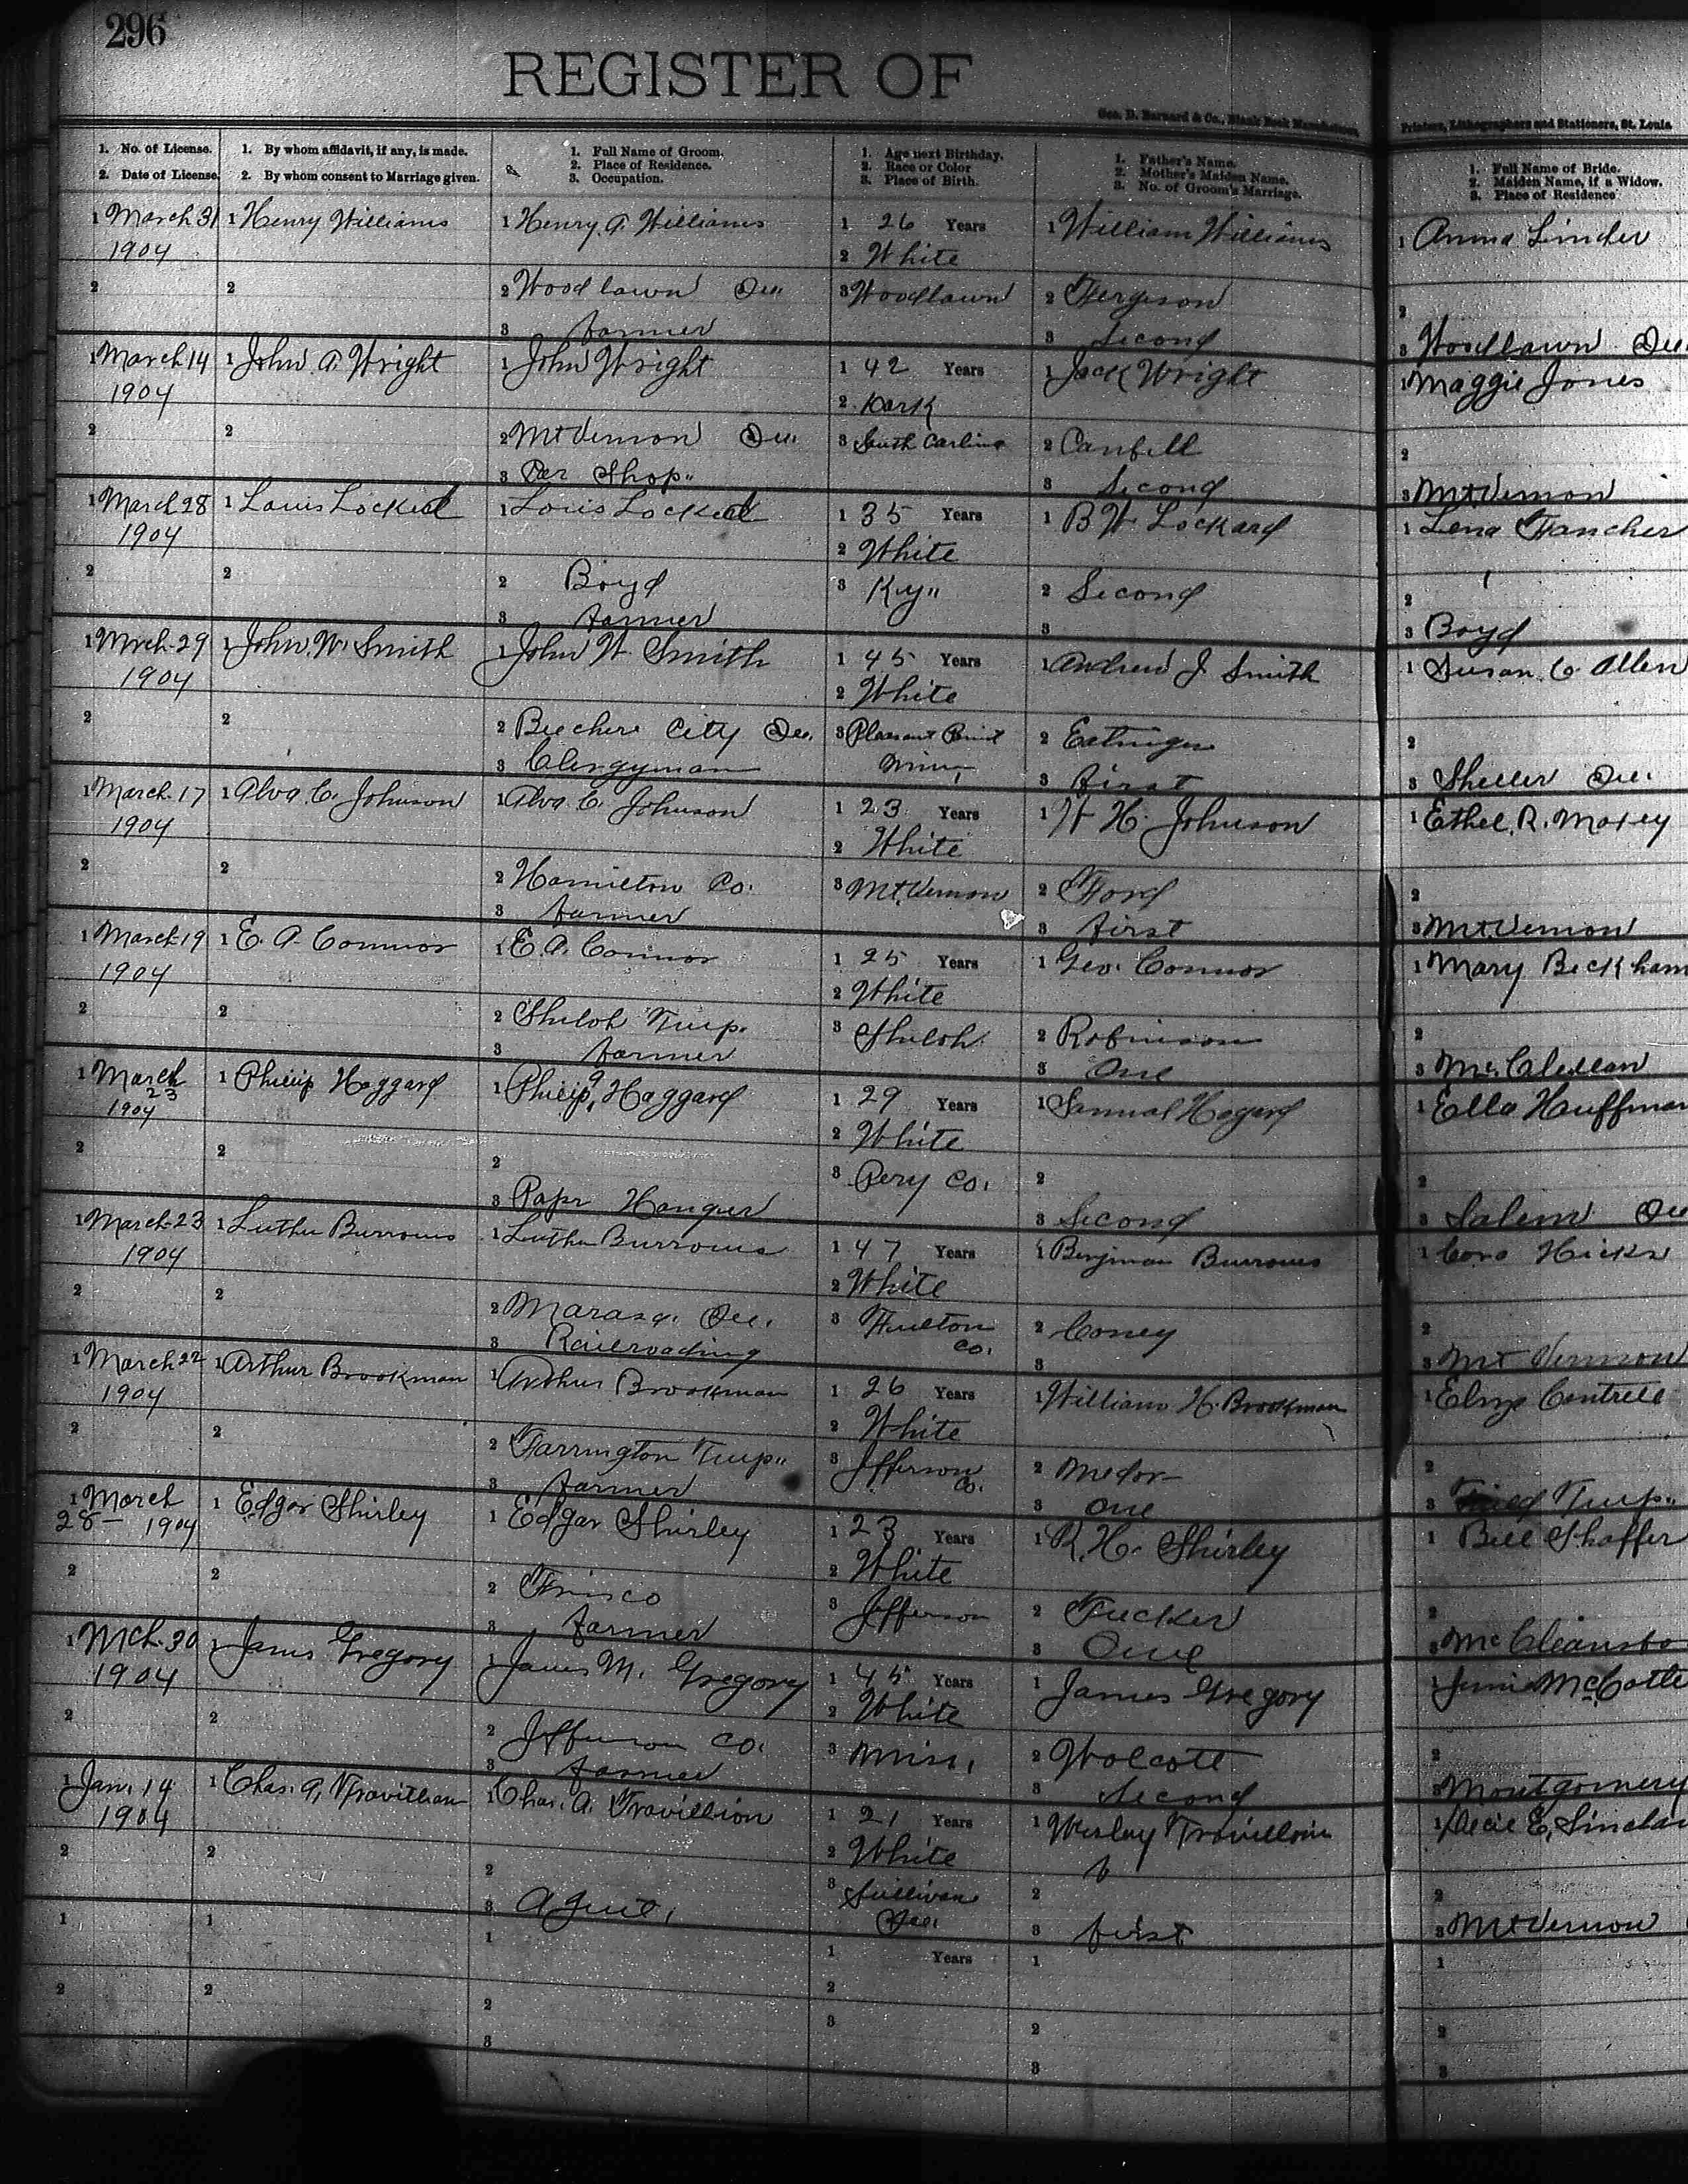 296
REGISTER OF
Geo. D. Barnard & Co., Blank Book Manufacturers,
Printers, Lithographers and Stationers, St. Louis.
1. No. of License.
2. Date of License.
1. By whom affidavit, if any, is made.
2. By whom consent to Marriage given.
1. Full Name of Groom.
2. Place of Residence.
3. Occupation.
1. Age next Birthday.
2. Race or Color
3. Place of Birth.
1. Father's Name.
2. Mother's Maiden Name.
3. No. of Groom's Marriage.
1. Full Name of Bride.
2. Maiden Name, if a Widow.
3. Place of Residence
1 March 31 1 Henry Williams 1 Henry A. Williams 1 26 Years 1 William Williams 1 Anna Linder
1904 2 White
2 2 2 Woodlawn Ill 3 Woodlawn 2 Fergison 2
3 farmer 3 Second 3 Woodlawn Ill
1 March 14 1 John A. Wright 1 John Wright 1 42 Years 1 Jack Wright 1 Maggie Jones
1904 2 Dark
2 2 2 Mt Vernon Ill 3 South Carlina 2 Canfill 2
3 Car Shop 3 Second 3 Mt Vernon
1 March 28 1 Louis Locked 1 Louis Locked 1 35 Years 1 B W Lockard 1 Lena Fancher
1904 2 White
2 2 2 Boyd 3 Ky 2 Second 2
3 farmer 3 3 Boyd
1 Mrch 29 1 John W. Smith 1 John W. Smith 1 45 Years 1 Andrew J Smith 1 Susan C. Allen
1904 2 White
2 2 2 Beecher City Ill. 3 Pleasant 2 2
3 Clergyman 3 first 3 Sheller Ill.
1 March 17 1 Alva C. Johnson 1 Alva C. Johnson 1 23 Years 1 W H. Johnson 1 Ethel R. Maxey
1904 2 White
2 2 2 Hamilton Co. 3 Mt Vernon 2 Ford 2
3 farmer 3 first 3 Mt Vernon
1 March 19 1 E. A. Connor 1 E. A. Connor 1 25 Years 1 Geo. Connor 1 Mary Beckham
1904 2 White
2 2 2 Shiloh Twp. 3 Shiloh 2 Robinson 2
3 farmer 3 One 3 McClellan
1 March 23 1 Phillip Haggard 1 Phillip Haggard 1 29 Years 1 Samual Hagard 1 Ella Hauffman
1904 2 White
2 2 2 3 Pery Co. 2 2
3 Papr Hanger 3 Second 3 Salem Ill
1 March 23 1 Luther Burrows 1 Luther Burrows 1 47 Years 1 Benjman Burrows 1 Cora Hicks
1904 2 White
2 2 2 Maroa, Ill. 3 Fulton Co. 2 Coney 2
3 Railroading 3 3 Mt Vernon
1 March 22 1 Arthur Brookman 1 Arthur Brookman 1 26 Years 1 William H. Brookman 1 Centrell
1904 2 White
2 2 2 Farrington Twp 3 Jefferson Co. 2 Medor 2
3 farmer 3 One 3 Field Twp
1 March 1 Edgar Shirley 1 Edgar Shirley 1 23 Years 1 R. H. Shirley 1 Bell Shaffer
28 - 1904 2 White
2 2 2 Frisco 3 Jefferson 2 Tucker 2
3 farmer 3 One 3 McCleansbo
1 Mch. 30 1 James Gregory 1 James M. Gregory 1 45 Years 1 James Gregory 1 Jennie McCotle
1904 2 White
2 2 2 Jefferson Co. 3 Miss. 2 Wolcott 2
3 farmer 3 Second 3 Montgomery
1 Jan. 14 1 Chas. A. Travillian 1 Chas. A. Travillion 1 21 Years 1 Wesley Travillion 1 E. Sinclai
1904 2 White
2 2 2 3 Sullivan Ill. 2 2
3 Agent, 3 first 3 Mt Vernon
1 1 1 1 Years 1 1
2 2 2 2 2 2
3 3 3 3